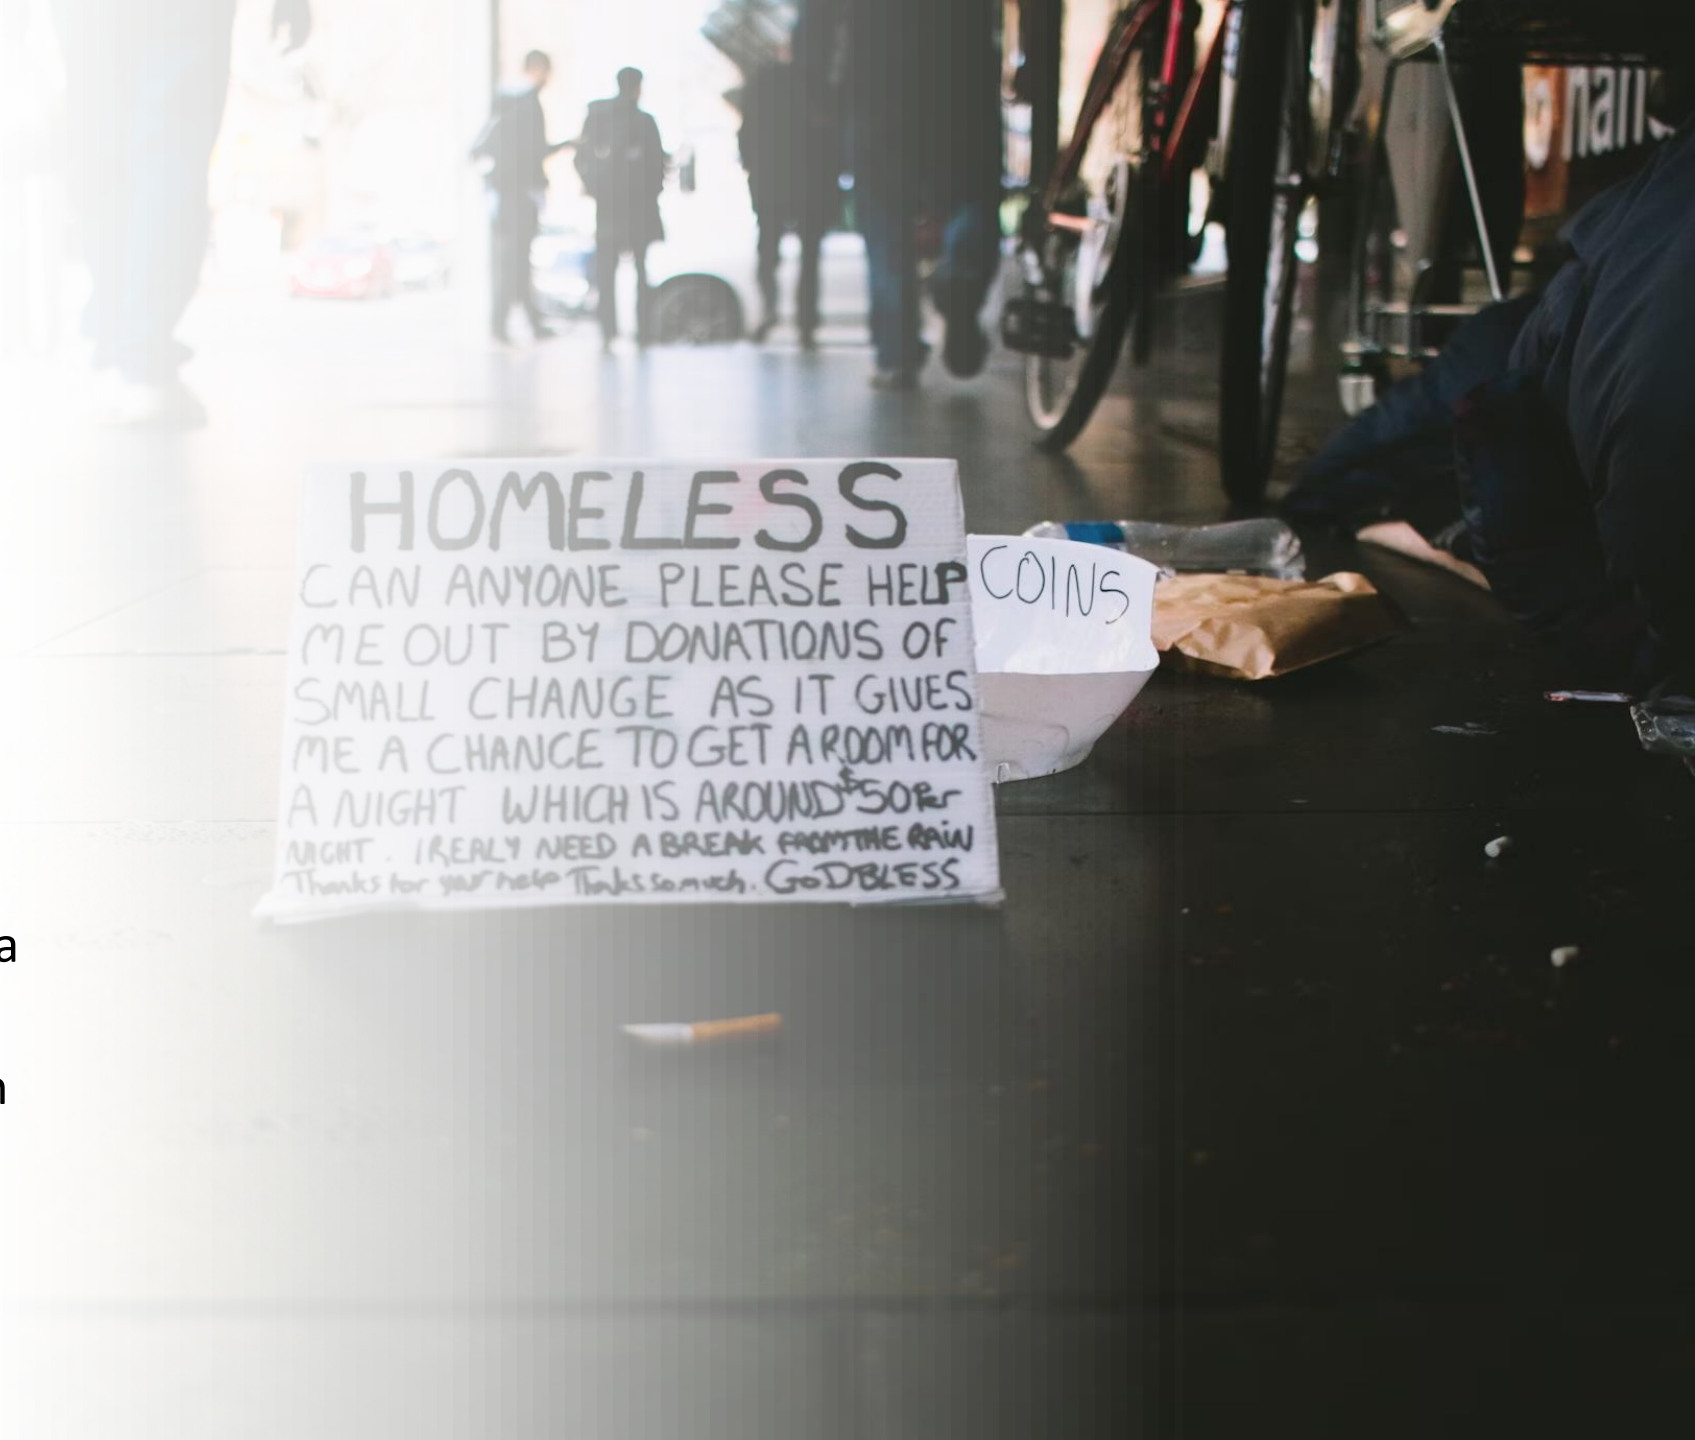 HOMELESS
CAN ANYONE PLEASE HELP
ME OUT BY DONATIONS OF
SMALL CHANGE AS IT GIVES
ME A CHANCE TO GET A ROOM FOR
A NIGHT WHICH IS AROUND $50 Per
NIGHT. I REALY NEED A BREAK FROM THE RAIN
Thanks for your help Thanks so much. GOD BLESS
COINS
a
n